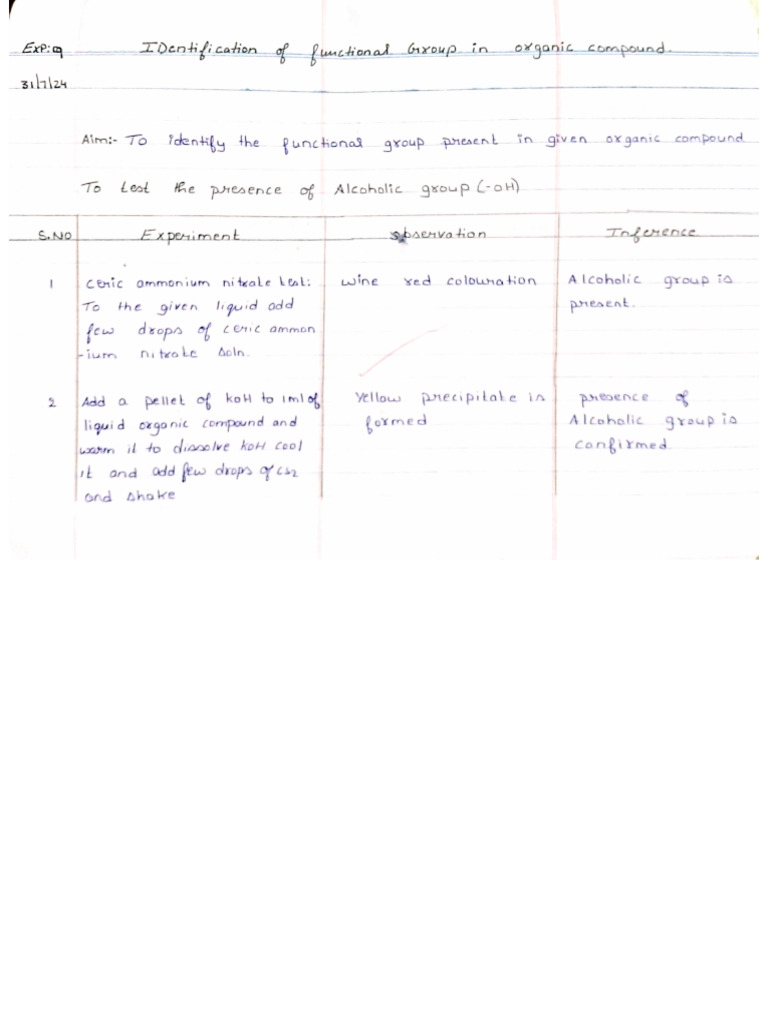 Exp: 9 IDentification of functional Group in organic compound.
31/7/24
Aim:- To identify the functional group present in given organic compound
To test the presence of Alcoholic group (-OH)
S.NO Experiment Observation Inference
1 Ceric ammonium nitrate test: Wine red colouration Alcoholic group is
To the given liquid add present.
few drops of ceric ammon
-ium nitrate soln.
2 Add a pellet of KOH to 1ml of Yellow precipitate is presence of
liquid organic compound and formed Alcoholic group is
warm it to dissolve KOH cool confirmed
it and add few drops of CS2
and shake